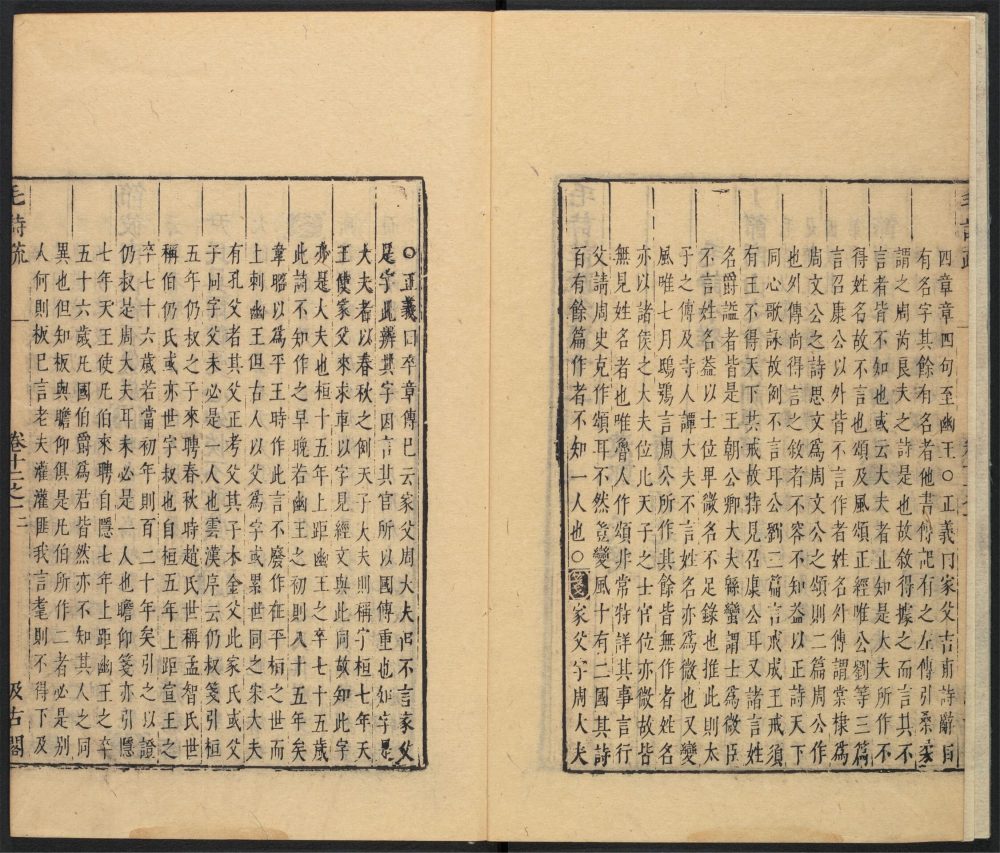 四章章四句至幽王○正義曰家父吉甫詩辭自
有名字其餘有名者他書傳記有之左傳引桑柔
謂之周芮良夫之詩是也故敘得據之而言其不
言者皆不知也或云大夫者止知是大夫所作不
得姓名故不言也頌及風頌正經唯公劉等三篇
言召康公以外皆不言作者姓名外傳謂棠棣為
周文公之詩思文為周文公之頌則二篇周公作
也外傳尚得言之敘者不容不知葢以正詩天下
同心歌詠故例不言耳公劉二篇言戒成王戒須
有王不得天下共戒故特見召康公耳又諸言姓
名爵謚者皆是王朝公卿大夫緜蠻謂士為微臣
不言姓名葢以士位卑微名不足錄也推此則太
子之傅及寺人譚大夫不言姓名亦為微也又變
風唯七月鴟鴞言周公所作其餘皆無作者姓名
亦以諸侯之大夫位比天子之士官位亦微故皆
無見姓名者也唯魯人作頌非常特詳其事言行
父請周史克作頌耳不然豈變風十有二國其詩
百有餘篇作者不知一人也○箋家父字周大夫
○正義曰卒章傳已云家父周大夫但不言家父
是字此辨其字因言其官所以為國傳重也知字是
大夫者以春秋之例天子大夫則稱字桓七年天
王使家父來求車以字見經文與此同故知此字
亦是大夫也桓十五年上距幽王之卒七十五歲
此詩不知作之早晚若幽王之初則八十五年矣
韋昭以為平王時作此言不廢作在平桓之世而
上刺幽王但古人以父為字或累世同之宋大夫
有孔父者其父正考父其子木金父此家氏或父
子同字父未必是一人也雲漢序云仍叔箋引桓
五年仍叔之子來聘春秋時趙氏世稱孟智氏世
稱伯仍氏或亦世字叔也自桓五年上距宣王之
卒七十六歲若當初年則百二十年矣引之以證
仍叔是周大夫耳未必是一人也瞻仰箋亦引隱
七年天王使凡伯來聘自隱七年上距幽王之卒
五十六歲凡國伯爵為君皆然亦不知其人之同
異也但知板與瞻仰俱是凡伯所作二者必是別
人何則板已言老夫灌灌匪我言耄則不得下及
毛詩疏
卷十二之一
二
汲古閣